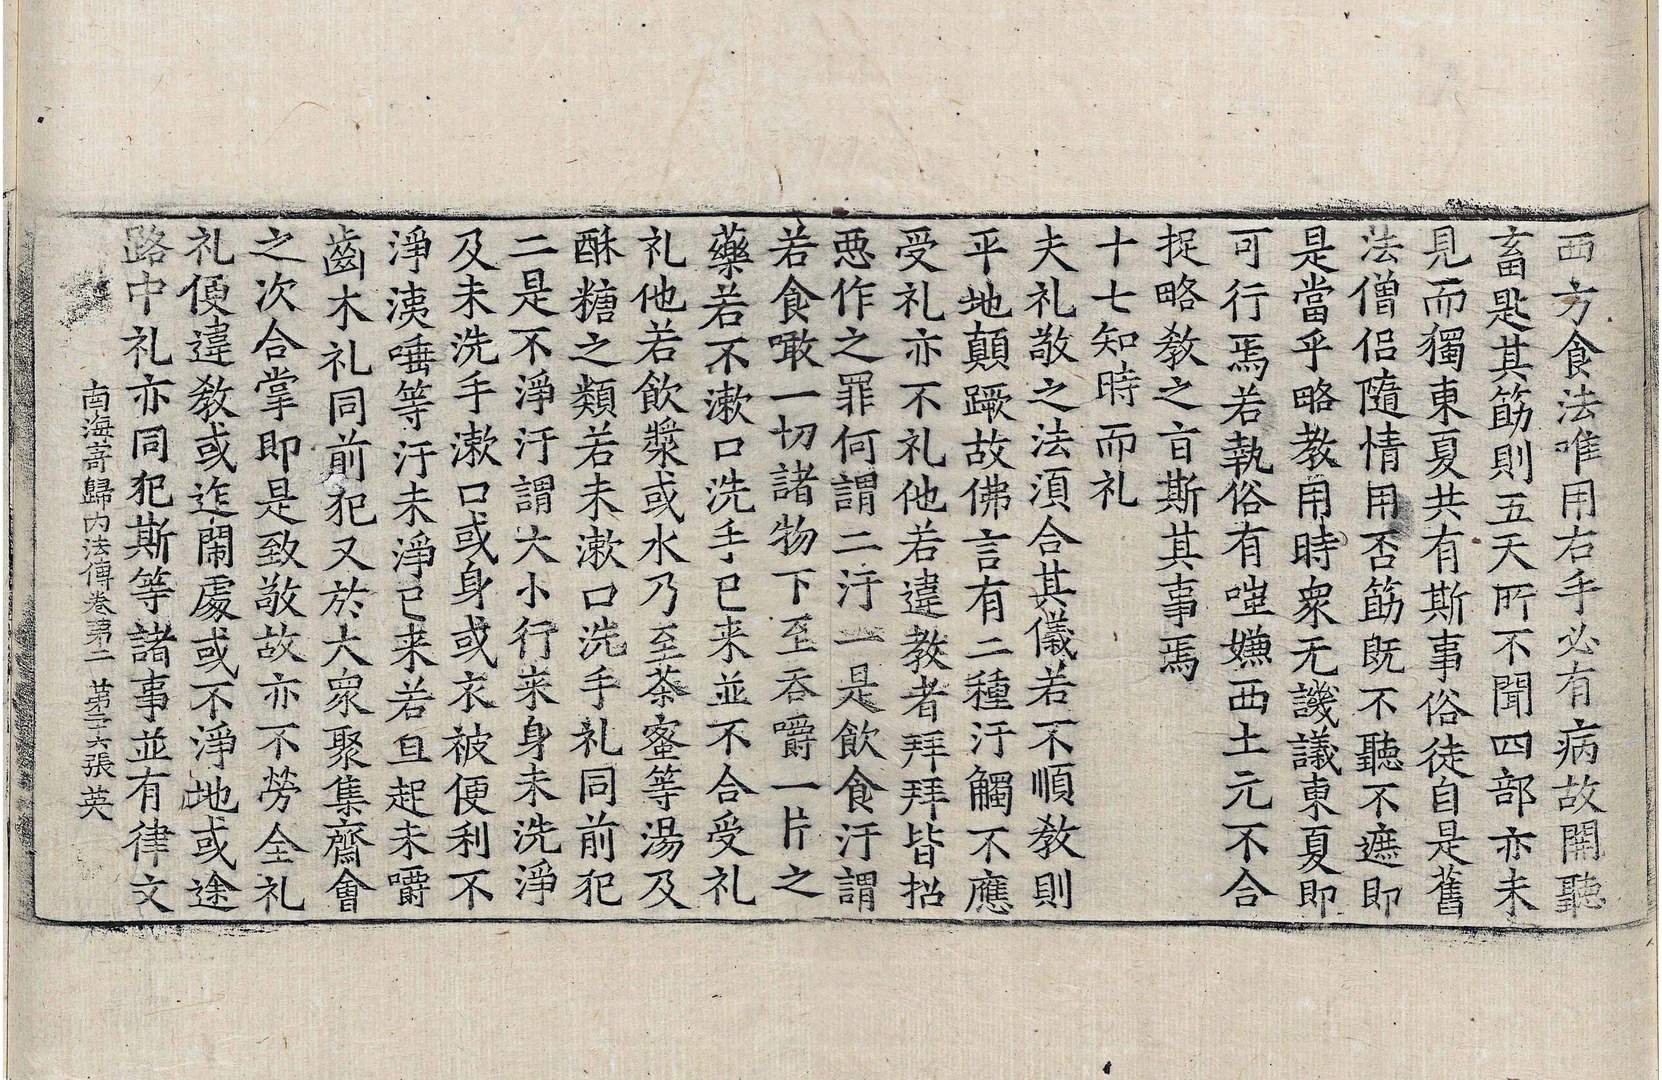 西方食法唯用右手必有病故開聽
畜匙其筯則五天所不聞四部亦未
見而獨東夏共有斯事俗徒自是舊
法僧侣隨情用否筯旣不聽不遮即
是當乎略教用時衆无譏議東夏即
可行焉若執俗有嗤嫌西土元不合
捉略教之㫖斯其事焉
十七知時而礼
夫礼敬之法湏合其儀若不順教則
平地顛蹶故佛言有二種汙觸不應
受礼亦不礼他若違教者拜拜皆招
惡作之罪何謂二汙一是飲食汙謂
若食噉一切諸物下至吞嚼一片之
藥若不漱口洗手已来並不合受礼
礼他若飲漿或水乃至茶蜜等湯及
酥糖之類若未漱口洗手礼同前犯
二是不淨汙謂大小行来身未洗淨
及未洗手漱口或身或衣被便利不
淨洟唾等汙未淨已来若旦起未嚼
齒木礼同前犯又於大衆聚集齋會
之次合掌即是致敬故亦不勞全礼
礼便違教或迮閙處或不淨地或途
路中礼亦同犯斯等諸事並有律文
南海寄歸内法傳卷第二 第二十六張 英